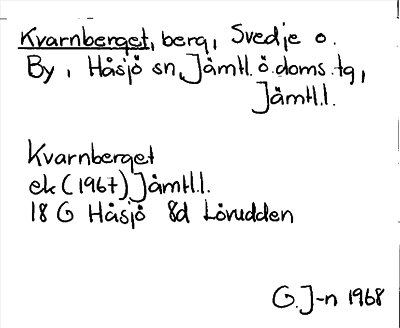 Kvarnberget, berg, Svedje o.
By, Håsjö sn, Jämtl. ö. doms. tg,
Jämtl.l.
Kvarnberget
ek (1967) Jämtl.l.
18 G Håsjö 8d Lövudden
G. J-n 1968